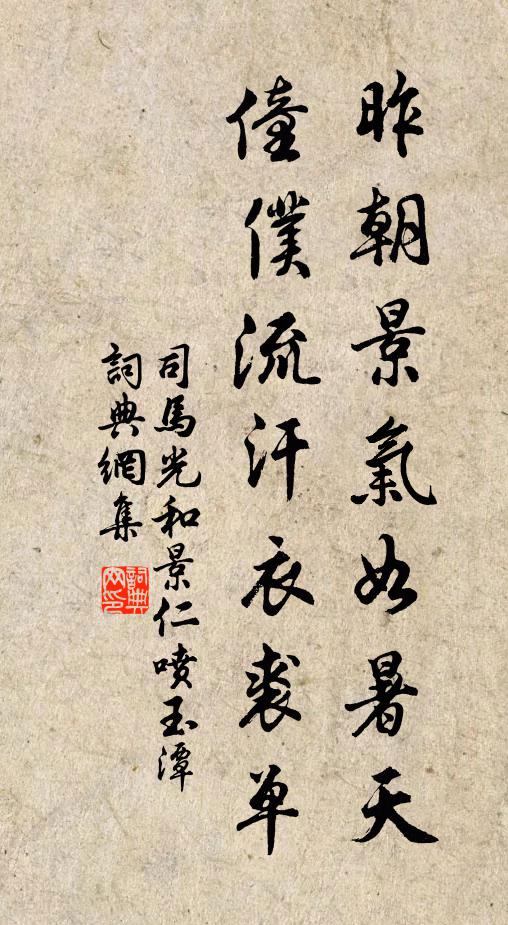 昨朝景氣如暑天
僮僕流汗衣裘單
司馬光和景仁噴玉潭
詞典網集
詞典網印